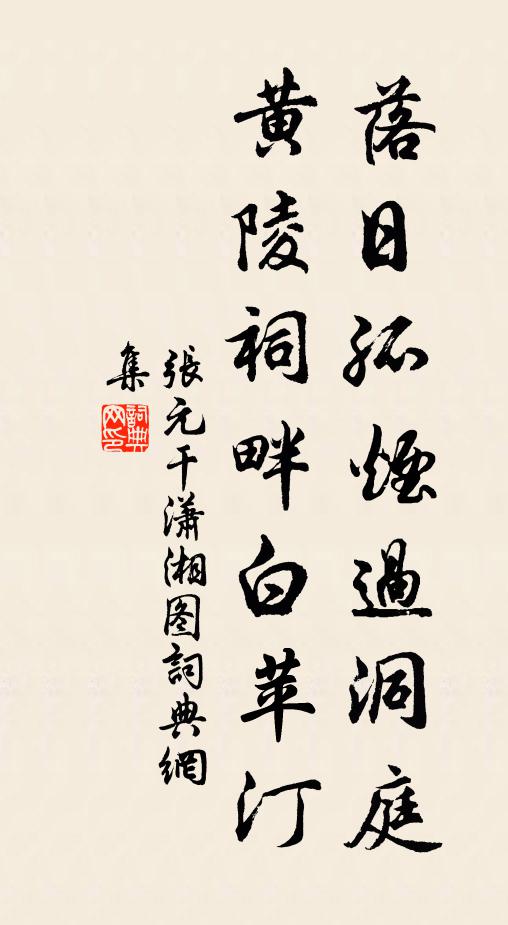 落日孤煙過洞庭
黄陵祠畔白苹汀
張元干瀟湘图詞典網
集
詞典网印